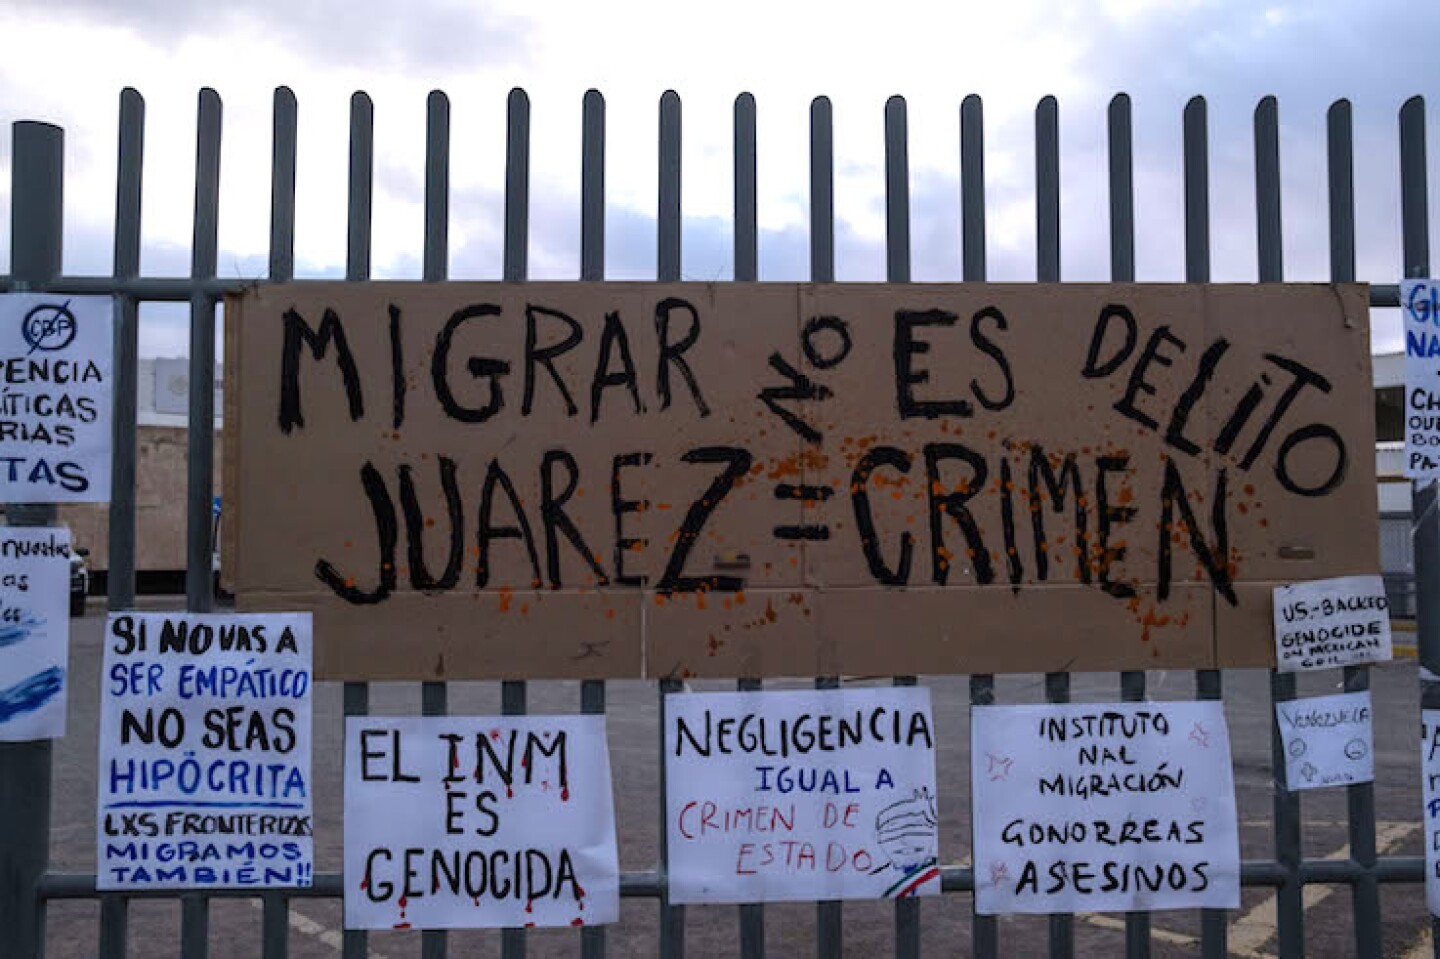 MIGRAR NO ES DELITO
JUAREZ = CRIMEN
CBP
TAS
SI NO VAS A
SER EMPÁTICO
NO SEAS
HIPÓCRITA
LXS FRONTERIZXS
MIGRAMOS
TAMBIÉN!!
EL INM
ES
GENOCIDA
NEGLIGENCIA
IGUAL A
CRIMEN DE
ESTADO
INSTITUTO
NAL
MIGRACIÓN
GONORREAS
ASESINOS
U.S.-BACKED
GENOCIDE
ON MEXICAN
SOIL
VENEZUELA